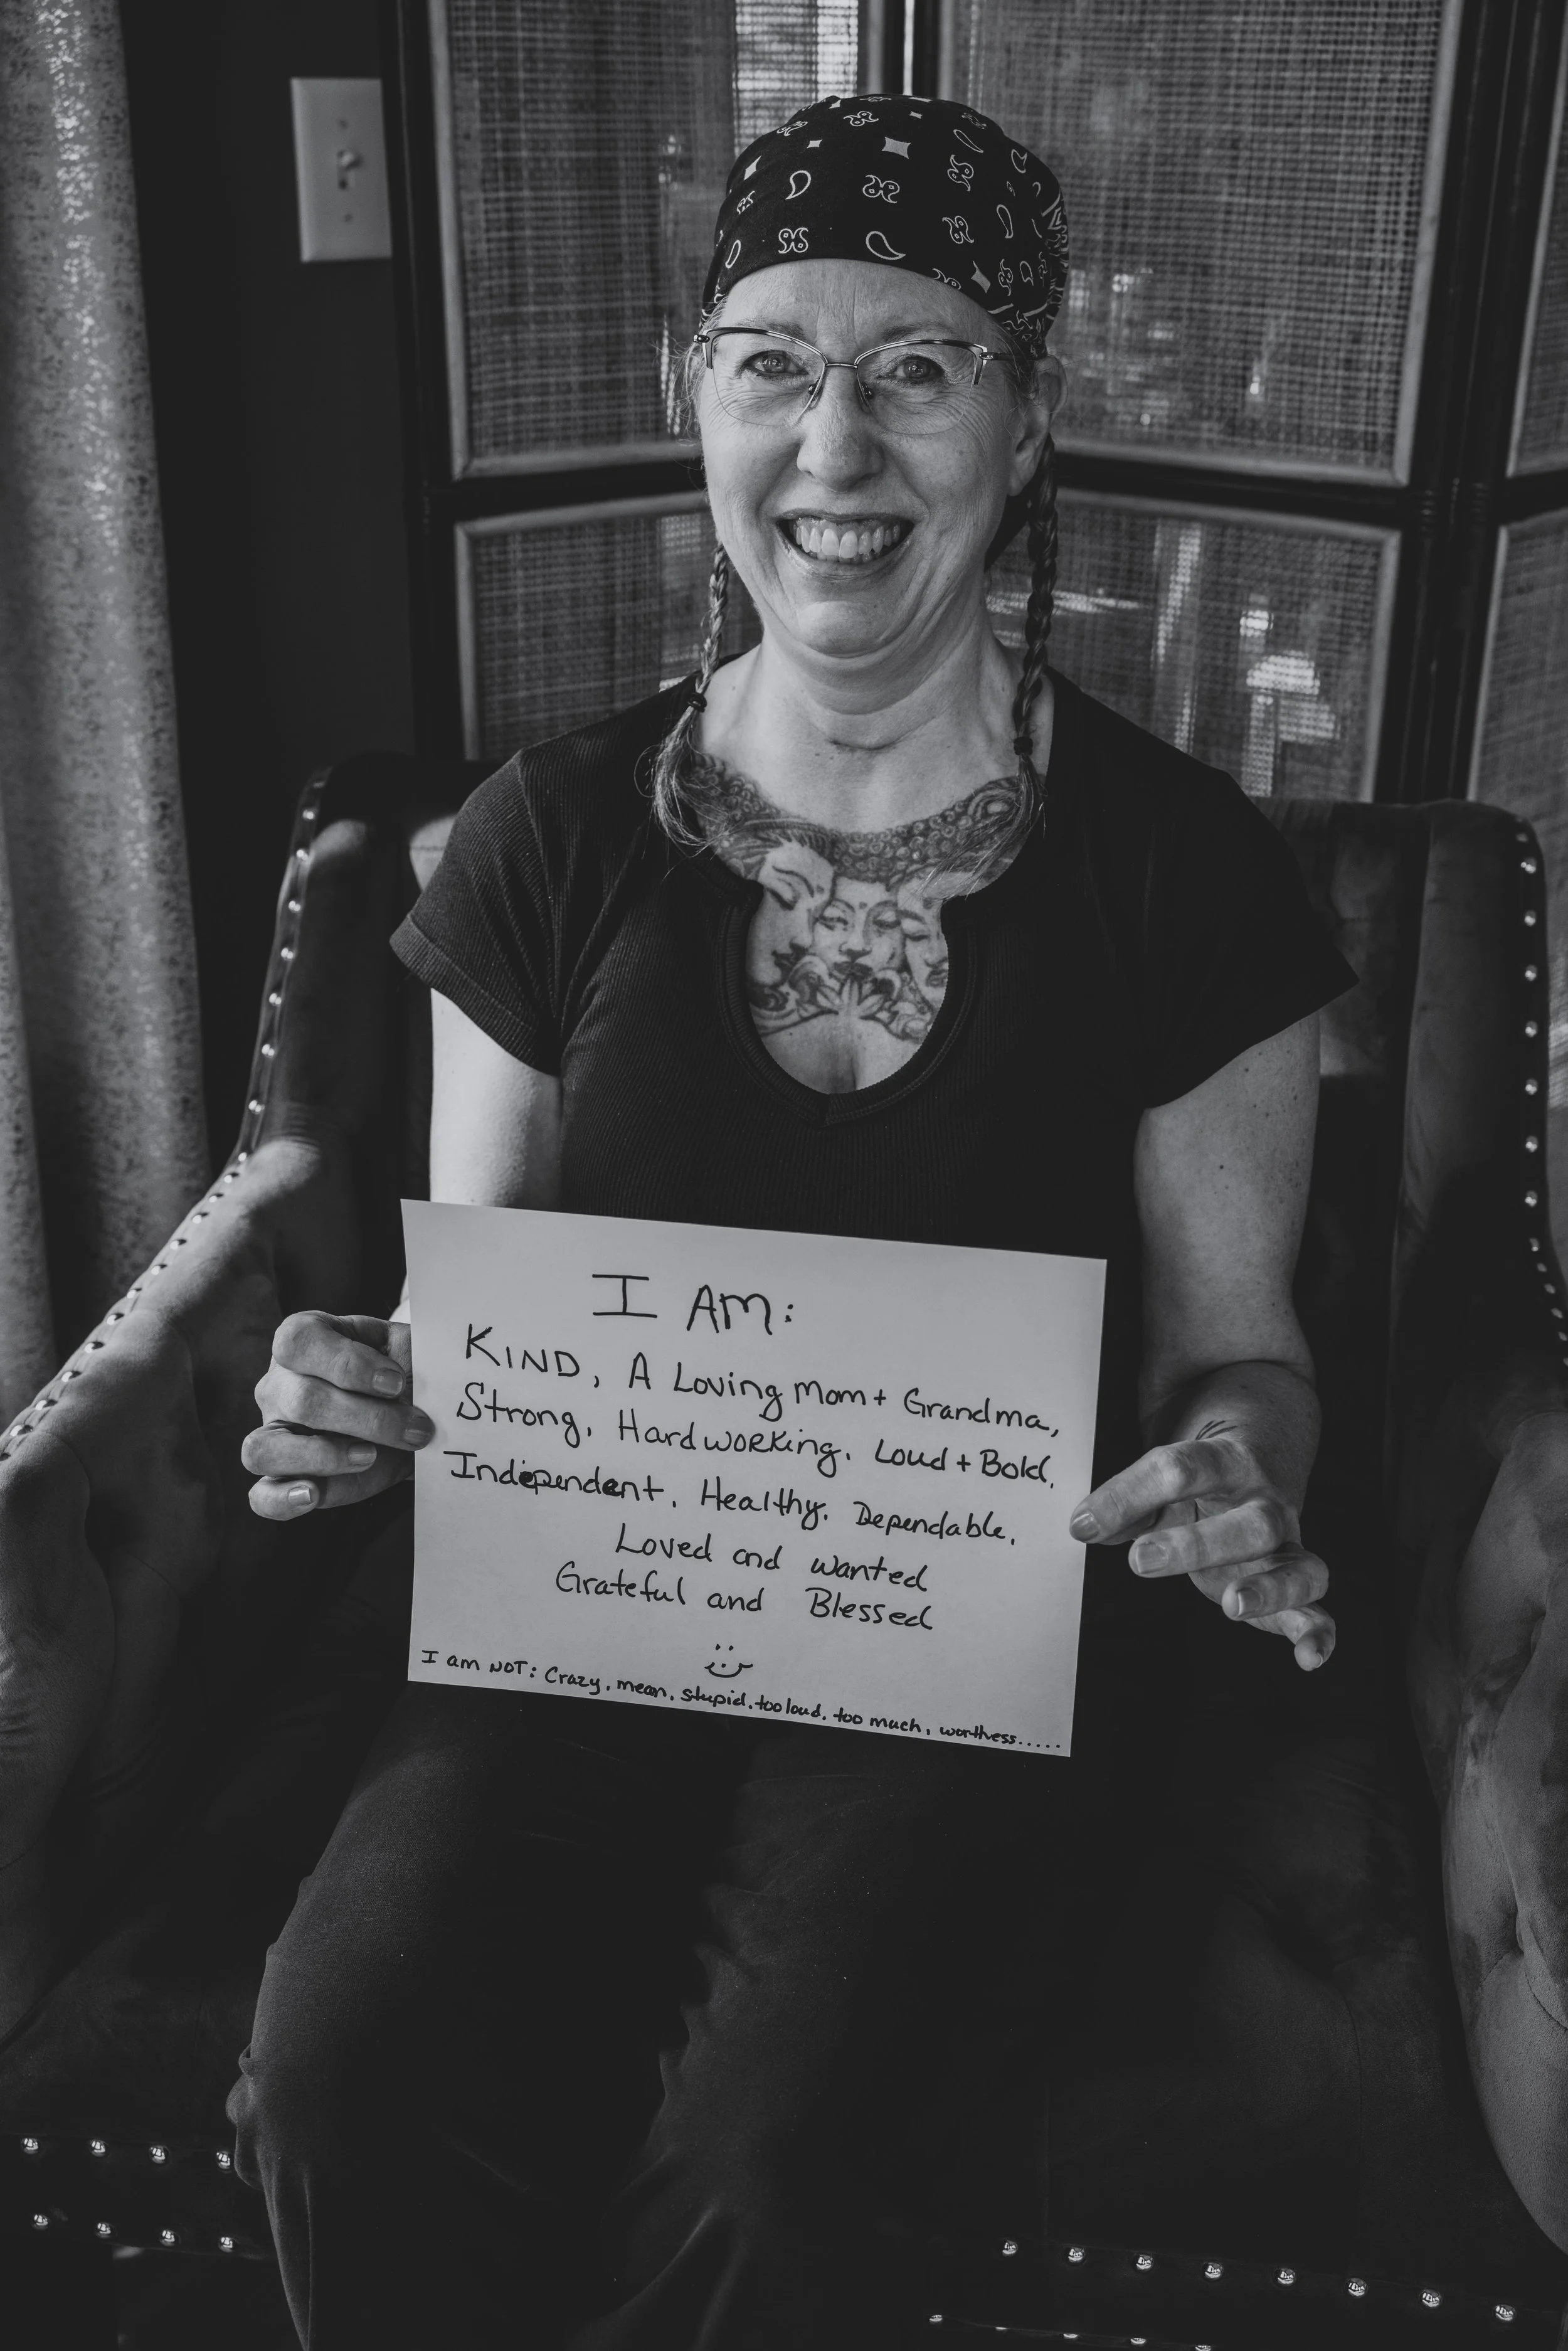 I AM:
KIND, A Loving Mom + Grandma,
Strong, Hardworking. Loud + Bold.
Independent. Healthy. Dependable.
Loved and wanted
Grateful and Blessed
I am NOT: Crazy, mean, stupid. too loud. too much, worthless.....